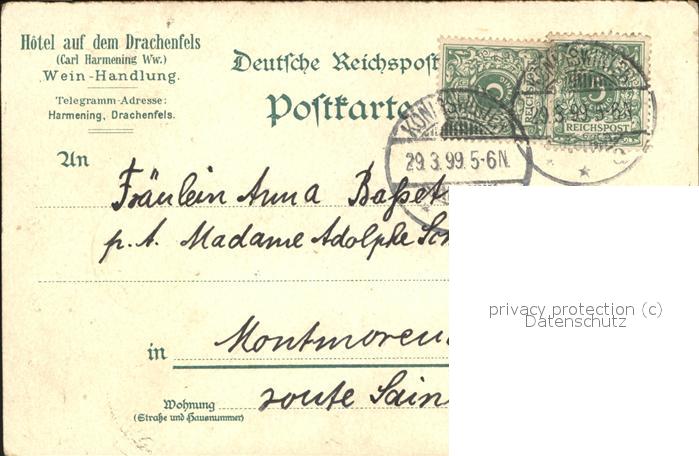 Hôtel auf dem Drachenfels
(Carl Harmening Ww.)
Wein-Handlung.
Telegramm-Adresse:
Harmening, Drachenfels.
Deutsche Reichspost
Postkarte
5
REICHSPOST
KÖNIGSWINTER
29.3.99.5-6N.
29.3.99.5-6N.
An
Fräulein Anna
p. A. Madame Adolphe
in
route
Wohnung
(Straße und Hausnummer)
privacy protection (c)
Datenschutz